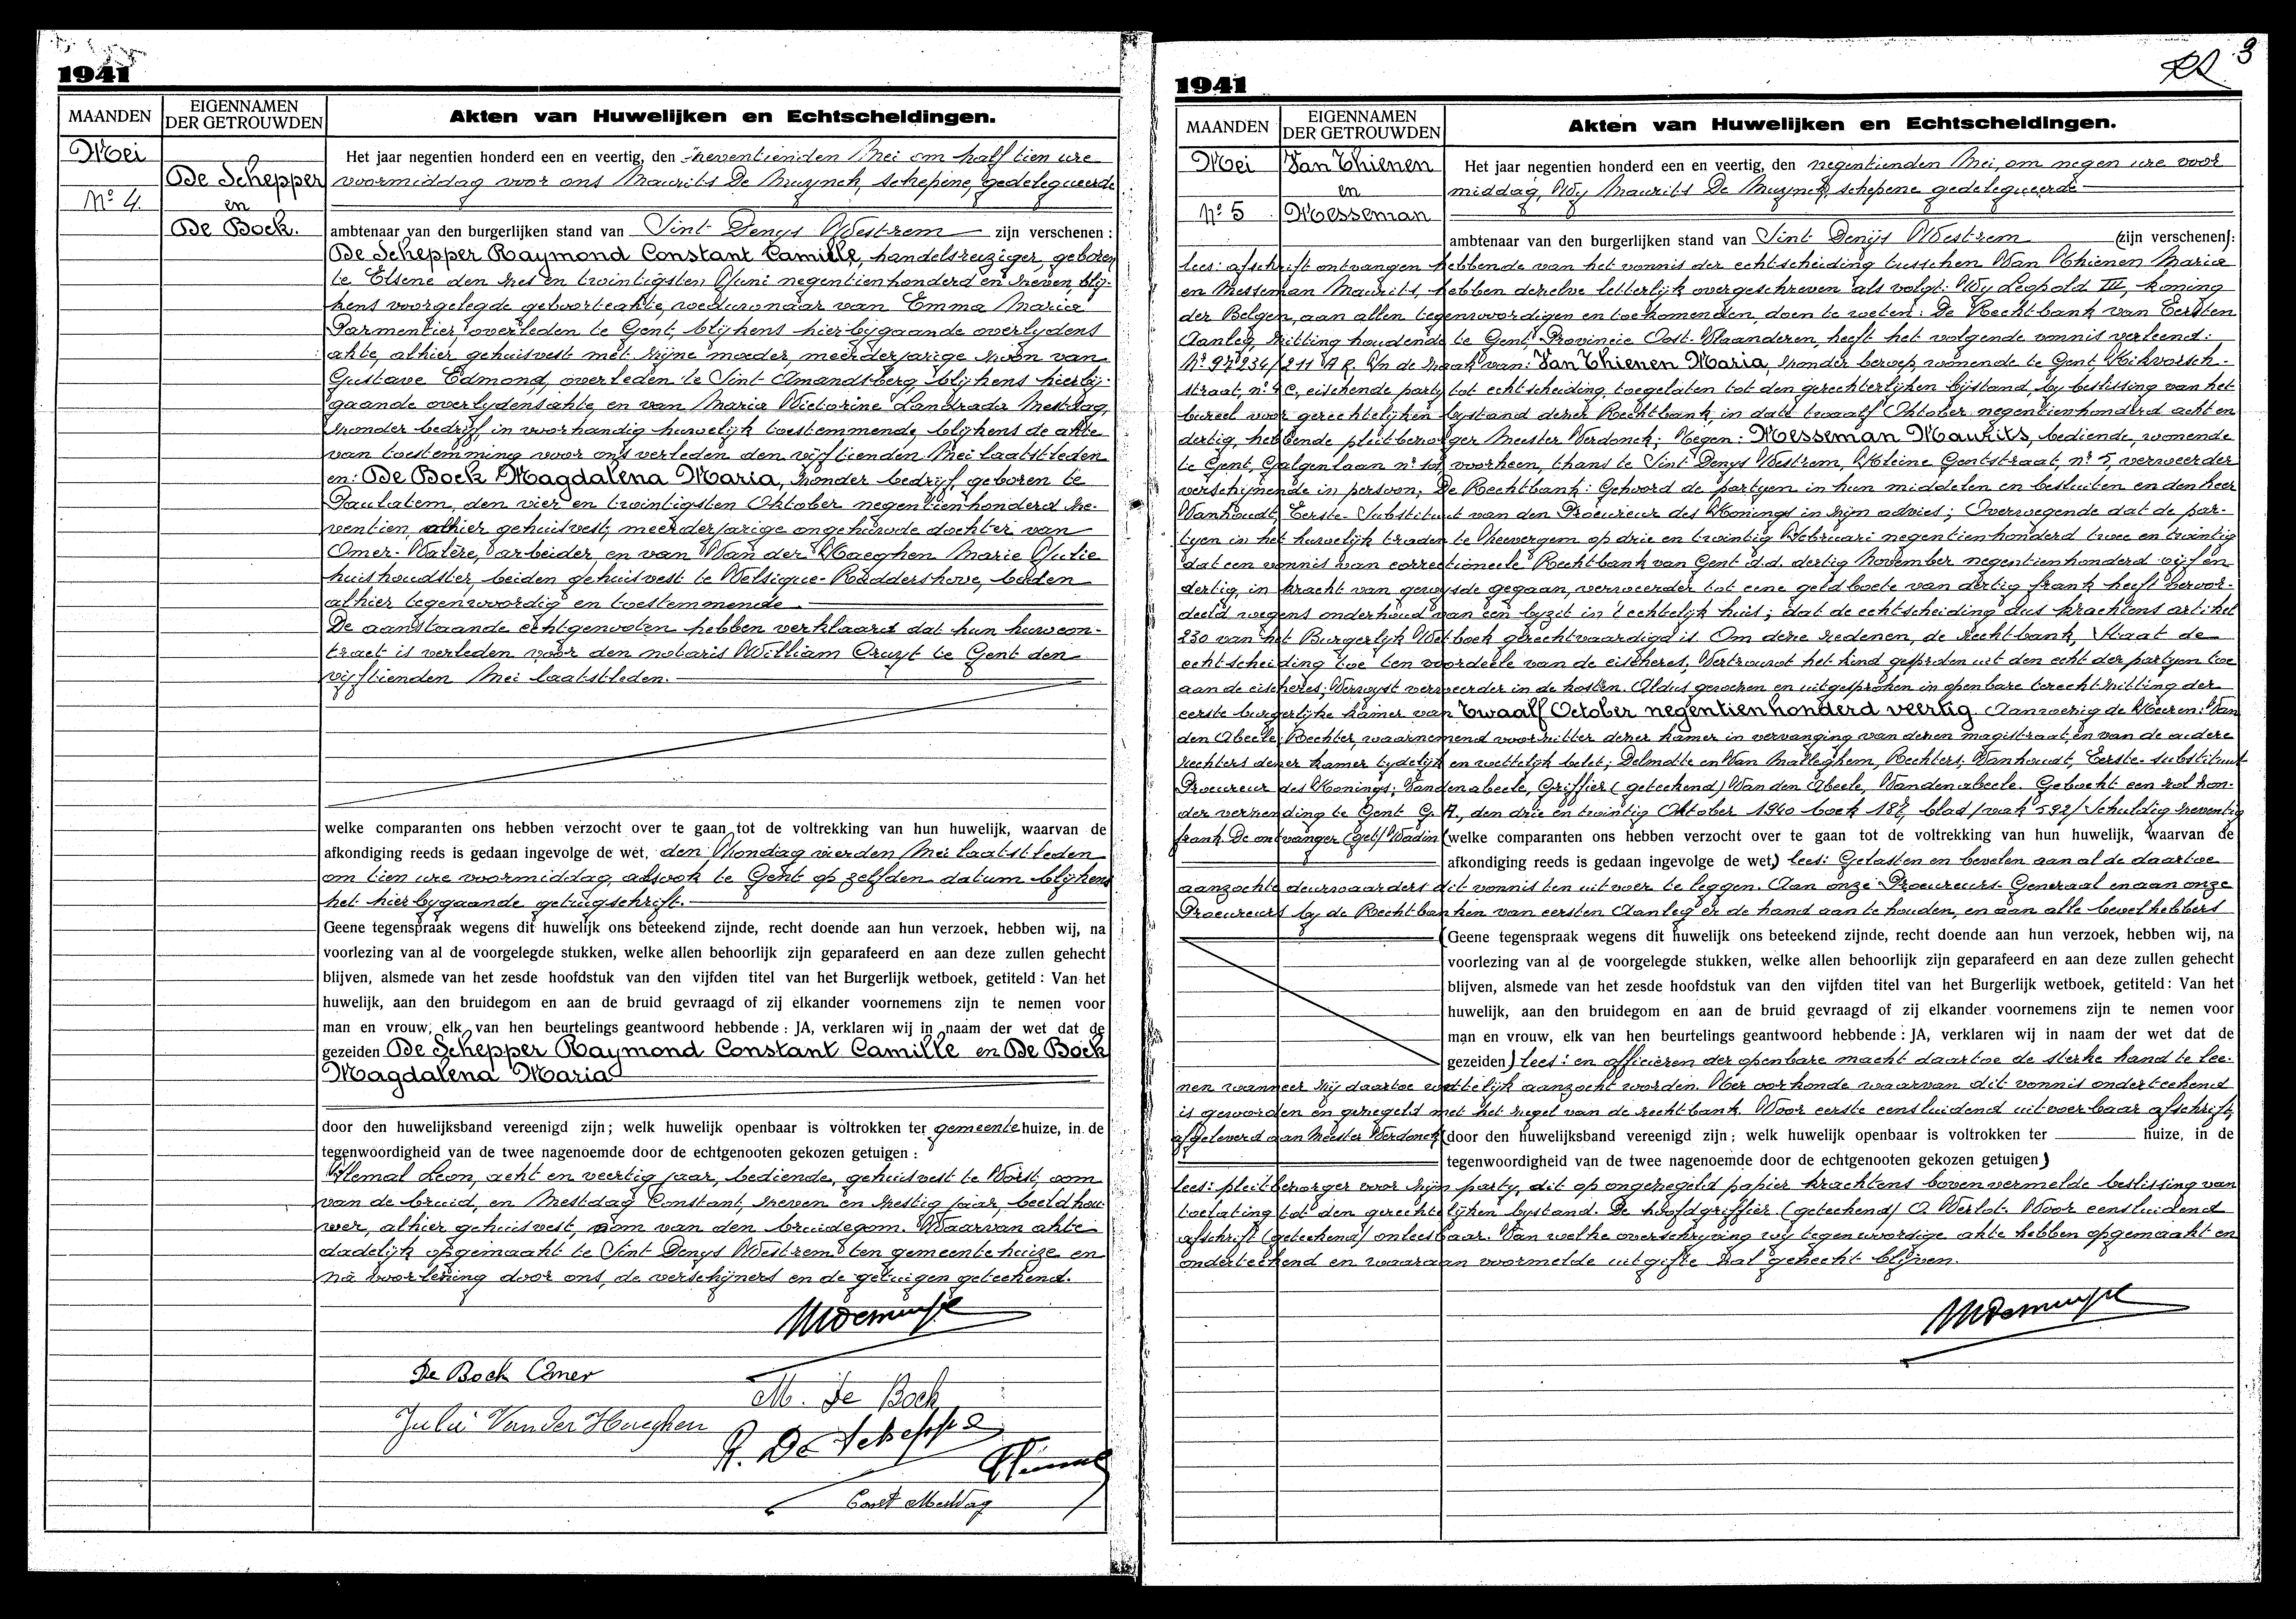 1941
MAANDEN
EIGENNAMEN DER GETROUWDEN
Akten van Huwelijken en Echtscheidingen.
Mei
Nº 4.
De Schepper
en
De Bock.
Het jaar negentien honderd een en veertig, den zeventienden Mei om half tien ure
voormiddag voor ons Maurits De Muynck, schepene, gedelegueerde
ambtenaar van den burgerlijken stand van Sint Denys Westrem zijn verschenen :
De Schepper Raymond Constant Camille, handelsreiziger, geboren
te Elsene den zes en twintigsten Juni negentienhonderd en zeven, blij-
kens voorgelegde geboorteakte, weduwnaar van Emma Maria
Parmentier, overleden te Gent, blijkens hierbygaande overlydens
akte, alhier gehuisvest met zijne moeder, meerderjarige zoon van
Gustave Edmond, overleden te Sint Amandsberg, blijkens hierbij-
gaande overlydensakte, en van Maria Victorine Landrada Mestdag,
zonder bedrijf in voorhandig huwelijk toestemmende, blijkens de akte
van toestemming voor ons verleden den vijftienden Mei laatstleden
en: De Bock Magdalena Maria, zonder bedrijf, geboren te
Paulatem, den vier en twintigsten Oktober negentienhonderd ze-
ventien, alhier gehuisvest, meerderjarige ongehuwde dochter van
Omer-Valère, arbeider, en van Van der Haeghen Marie Julie
huishoudster, beiden gehuisvest te Velsique-Ruddershove, beiden
alhier tegenwoordig en toestemmende.
De aanstaande echtgenooten hebben verklaard dat hun huwcon-
tract is verleden voor den notaris William Cruyt te Gent den
vijftienden Mei laatstleden.
welke comparanten ons hebben verzocht over te gaan tot de voltrekking van hun huwelijk, waarvan de
afkondiging reeds is gedaan ingevolge de wet, den Zondag vierden Mei laatstleden
om tien ure voormiddag, alsook te Gent op zelfden datum blijkens
het hierbygaande getuigschrift.
Geene tegenspraak wegens dit huwelijk ons beteekend zijnde, recht doende aan hun verzoek, hebben wij, na
voorlezing van al de voorgelegde stukken, welke allen behoorlijk zijn geparafeerd en aan deze zullen gehecht
blijven, alsmede van het zesde hoofdstuk van den vijfden titel van het Burgerlijk wetboek, getiteld : Van het
huwelijk, aan den bruidegom en aan de bruid gevraagd of zij elkander voornemens zijn te nemen voor
man en vrouw, elk van hen beurtelings geantwoord hebbende : JA, verklaren wij in naam der wet dat de
gezeiden De Schepper Raymond Constant Camille en De Bock
Magdalena Maria
door den huwelijksband vereenigd zijn ; welk huwelijk openbaar is voltrokken ter gemeentehuize, in de
tegenwoordigheid van de twee nagenoemde door de echtgenooten gekozen getuigen :
Hemal Leon, acht en veertig jaar, bediende, gehuisvest te Vorst, oom
van de bruid, en Mestdag Constant, zeven en zestig jaar, beeldhou
wer, alhier gehuisvest, oom van den bruidegom. Waarvan akte
dadelijk opgemaakt te Sint Denys Westrem ten gemeentehuize en
na voorlezing door ons, de verschijners en de getuigen geteekend.
De Bock Omer
M. De Bock
Julie Van der Haeghen
R. De Schepper
Const Mestdag
1941
3
MAANDEN
EIGENNAMEN DER GETROUWDEN
Akten van Huwelijken en Echtscheidingen.
Mei
Nº 5
Van Thienen
en
Messeman
Het jaar negentien honderd een en veertig, den negentienden Mei, om negen ure voor
middag, Wy Maurits De Muynck, schepene gedelegueerde
ambtenaar van den burgerlijken stand van Sint Denijs Westrem (zijn verschenen):
lees: afschrift ontvangen hebbende van het vonnis der echtscheiding tusschen Van Thienen Maria
en Messeman Maurits, hebben dezelve letterlijk overgeschreven als volgt: Wy Leopold III, koning
der Belgen, aan allen tegenwoordigen en toekomenden, doen te weten: De Rechtbank van Eersten
Aanleg, zitting houdende te Gent, Provincie Oost-Vlaanderen, heeft het volgende vonnis verleend:
In de zaak van: Van Thienen Maria, zonder beroep, wonende te Gent, Kikvorsch-
straat, eischende party tot echtscheiding, toegelaten tot den gerechterlijken bijstand, by beslissing van het
bureel voor gerechtelijken bystand dezer Rechtbank, in date twaalf Oktober negentienhonderd acht en
dertig, hebbende pleitbezorger Meester Verdonck; Tegen: Messeman Maurits, bediende, wonende
te Gent, Galgenlaan voorheen, thans te Sint Denys Westrem, Kleine Gentstraat, nº 5, verweerder
verschijnende in persoon; De Rechtbank: Gehoord de partyen in hun middelen en besluiten en den heer
Vanhoudt, Eerste-Substituut van den Procureur des Konings in zijn advies; Overwegende dat de par-
tyen in het huwelijk traden te Heewergem op drie en twintig Februari negentienhonderd twee en twintig
dat een vonnis van correctioneele Rechtbank van Gent d.d. dertig November negentienhonderd vijf en
dertig, in kracht van gewijsde gegaan, verweerder tot eene geldboete van dertig frank heeft veroor-
deeld wegens onderhoud van een byzit in 't echtelijk huis; dat de echtscheiding dus krachtens artikel
230 van het Burgerlijk Wetboek gerechtvaardigd is. Om deze redenen, de rechtbank, Staat de
echtscheiding toe ten voordeele van de eischeres, Vertrouwt het kind gesproten uit den echt der partyen toe
aan de eischeres; Verwyst verweerder in de kosten. Aldus gewezen en uitgesproken in openbare terechtzitting der
eerste burgerlijke kamer van Twaalf October negentienhonderd veertig. Aanwezig de Heeren: Van
den Abeele, Rechter, waarnemend voorzitter dezer kamer in vervanging van dezen magistraat, en van de andere
rechters dezer kamer tydelijk en wettelijk belet; Delmotte en Van Malleghem, Rechters; Vanhoudt, Eerste-substituut
Procureur des Konings; Vandenabeele, Griffier (geteekend) Van den Abeele, Vandenabeele. Geboekt een rol zon-
der verzending te Gent G.A., den drie en twintig Oktober 1940 boek 187, blad/vak 592/ Schuldig zeventig
frank De ontvanger (get) Wadin (welke comparanten ons hebben verzocht over te gaan tot de voltrekking van hun huwelijk, waarvan de
afkondiging reeds is gedaan ingevolge de wet) lees: Gelasten en bevelen aan al de daartoe
aanzochte deurwaarders dit vonnis ten uitvoer te leggen. Aan onze Procureurs-Generaal en aan onze
Procureurs by de Rechtbanken van eersten Aanleg er de hand aan te houden, en aan alle bevelhebbers
(Geene tegenspraak wegens dit huwelijk ons beteekend zijnde, recht doende aan hun verzoek, hebben wij, na
voorlezing van al de voorgelegde stukken, welke allen behoorlijk zijn geparafeerd en aan deze zullen gehecht
blijven, alsmede van het zesde hoofdstuk van den vijfden titel van het Burgerlijk wetboek, getiteld : Van het
huwelijk, aan den bruidegom en aan de bruid gevraagd of zij elkander voornemens zijn te nemen voor
man en vrouw, elk van hen beurtelings geantwoord hebbende : JA, verklaren wij in naam der wet dat de
gezeiden) lees: en officieren der openbare macht daartoe de sterke hand te lee-
nen wanneer zij daartoe wettelijk aanzocht worden. Ter oorkonde waarvan dit vonnis onderteekend
is geworden en gezegeld met het zegel van de rechtbank. Voor eerste eensluidend uitvoerbaar afschrift,
afgeleverd aan Meester Verdonck (door den huwelijksband vereenigd zijn ; welk huwelijk openbaar is voltrokken ter huize, in de
tegenwoordigheid van de twee nagenoemde door de echtgenooten gekozen getuigen)
lees: pleitbezorger voor zijn party, dit op ongezegeld papier krachtens bovenvermelde beslissing van
toelating tot den gerechtelijken bystand. De hoofdgriffier (geteekend) O. Verlot. Voor eensluidend
afschrift (geteekend) onleesbaar. Van welke overschryving wy tegenwoordige akte hebben opgemaakt en
onderteekend en waaraan voormelde uitgifte zal gehecht blijven.